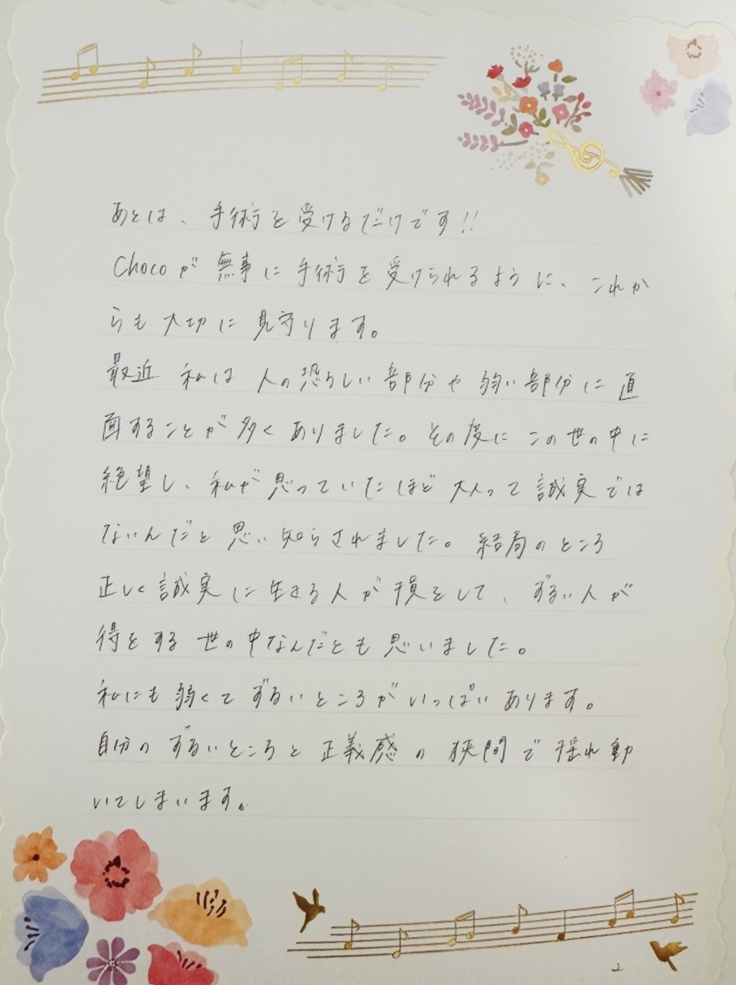 あとは、手術を受けるだけです!!
Chocoが無事に手術を受けられるように、これか
らも大切に見守ります。
最近私は人の恐ろしい部分や弱い部分に直
面することが多くありました。その度にこの世の中に
絶望し、私が思っていたほど大人って誠実では
ないんだと思い知らされました。結局のところ
正しく誠実に生きる人が損をして、ずるい人が
得をする世の中なんだとも思いました。
私にも弱くてずるいところがいっぱいあります。
自分のずるいところと正義感の狭間で揺れ動
いてしまいます。
2